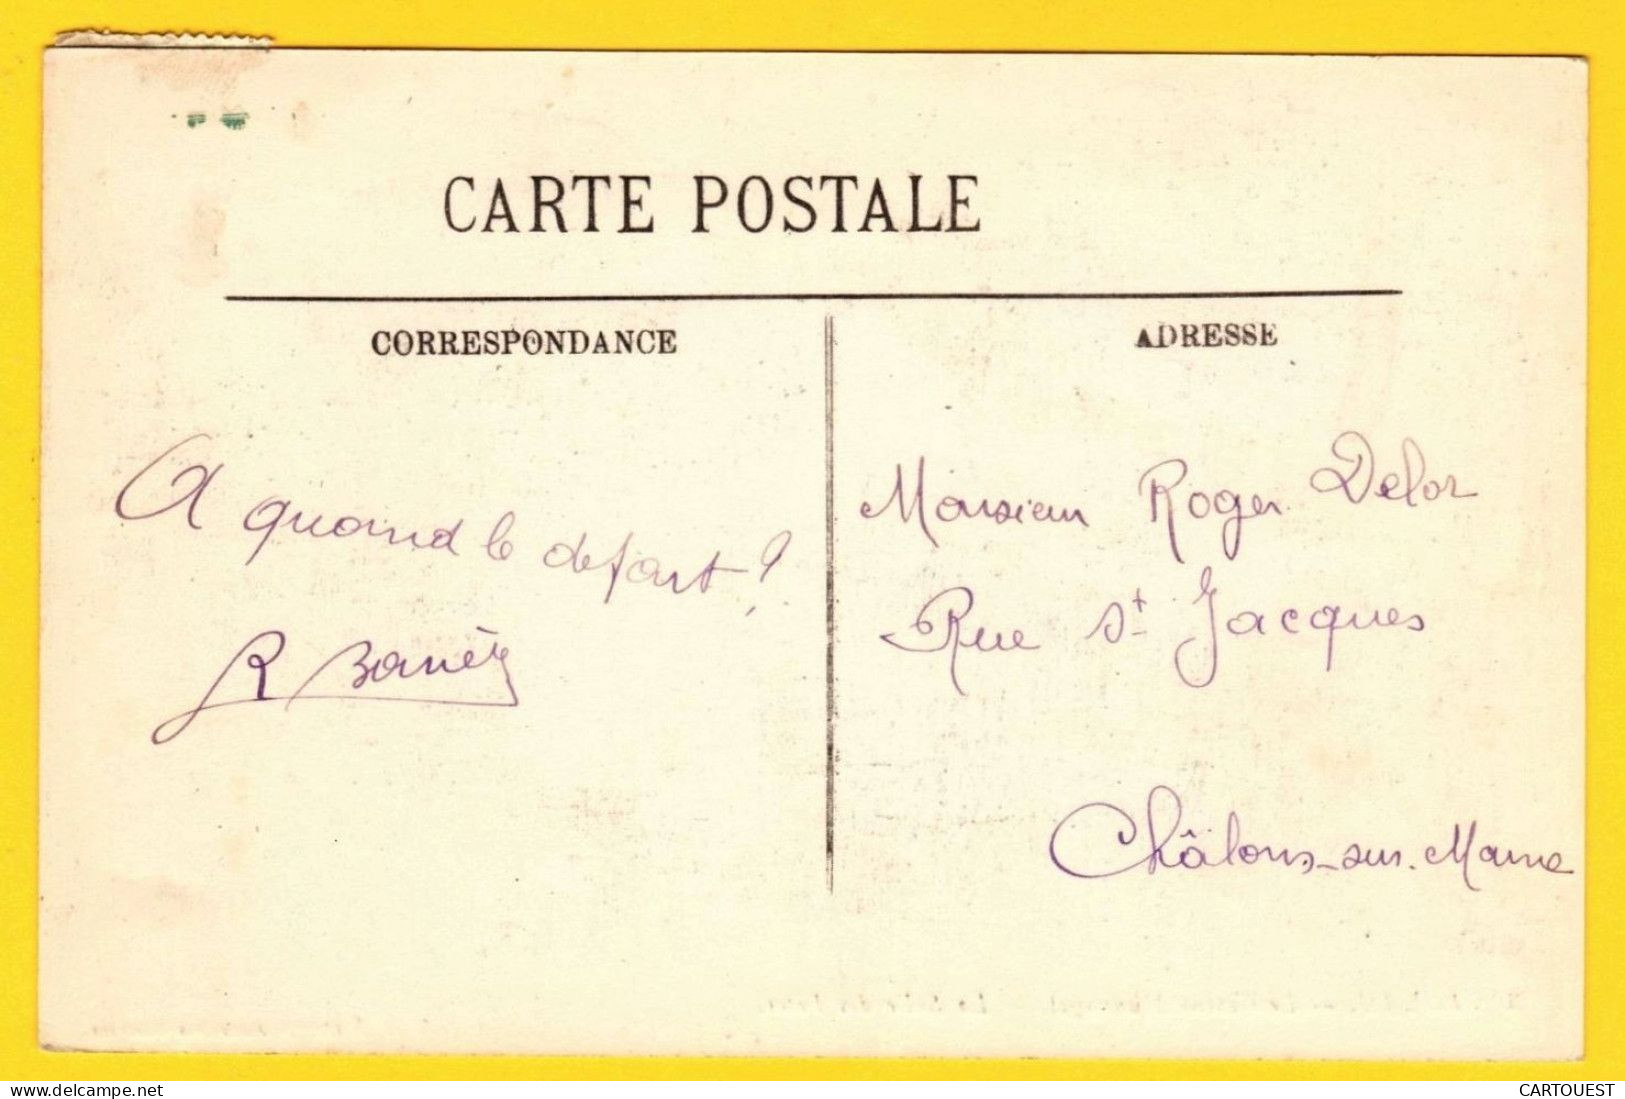 CARTE POSTALE
CORRESPONDANCE
ADRESSE
A quand le depart?
R
Monsieur Roger Delor
Rue St Jacques
Châlons-sur-Marne
delcampe.net
CARTOUEST